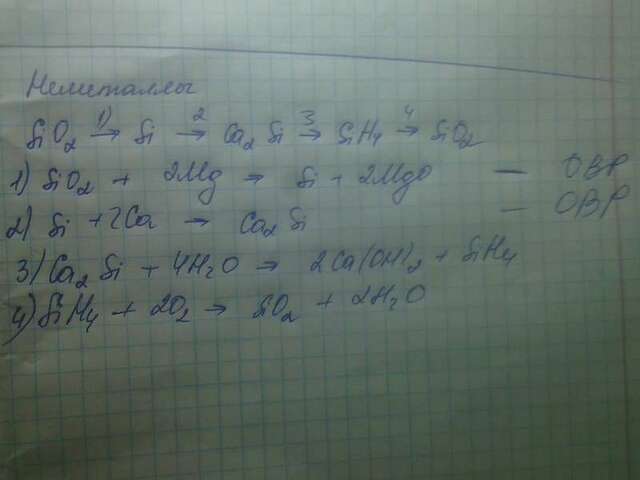 Неметаллы
SiO₂ →¹⁾ Si →² Ca₂Si →³ SiH₄ →⁴ SiO₂
1) SiO₂ + 2Mg → Si + 2MgO — ОВР
2) Si + 2Ca → Ca₂Si — ОВР
3) Ca₂Si + 4H₂O → 2Ca(OH)₂ + SiH₄
4) SiH₄ + 2O₂ → SiO₂ + 2H₂O